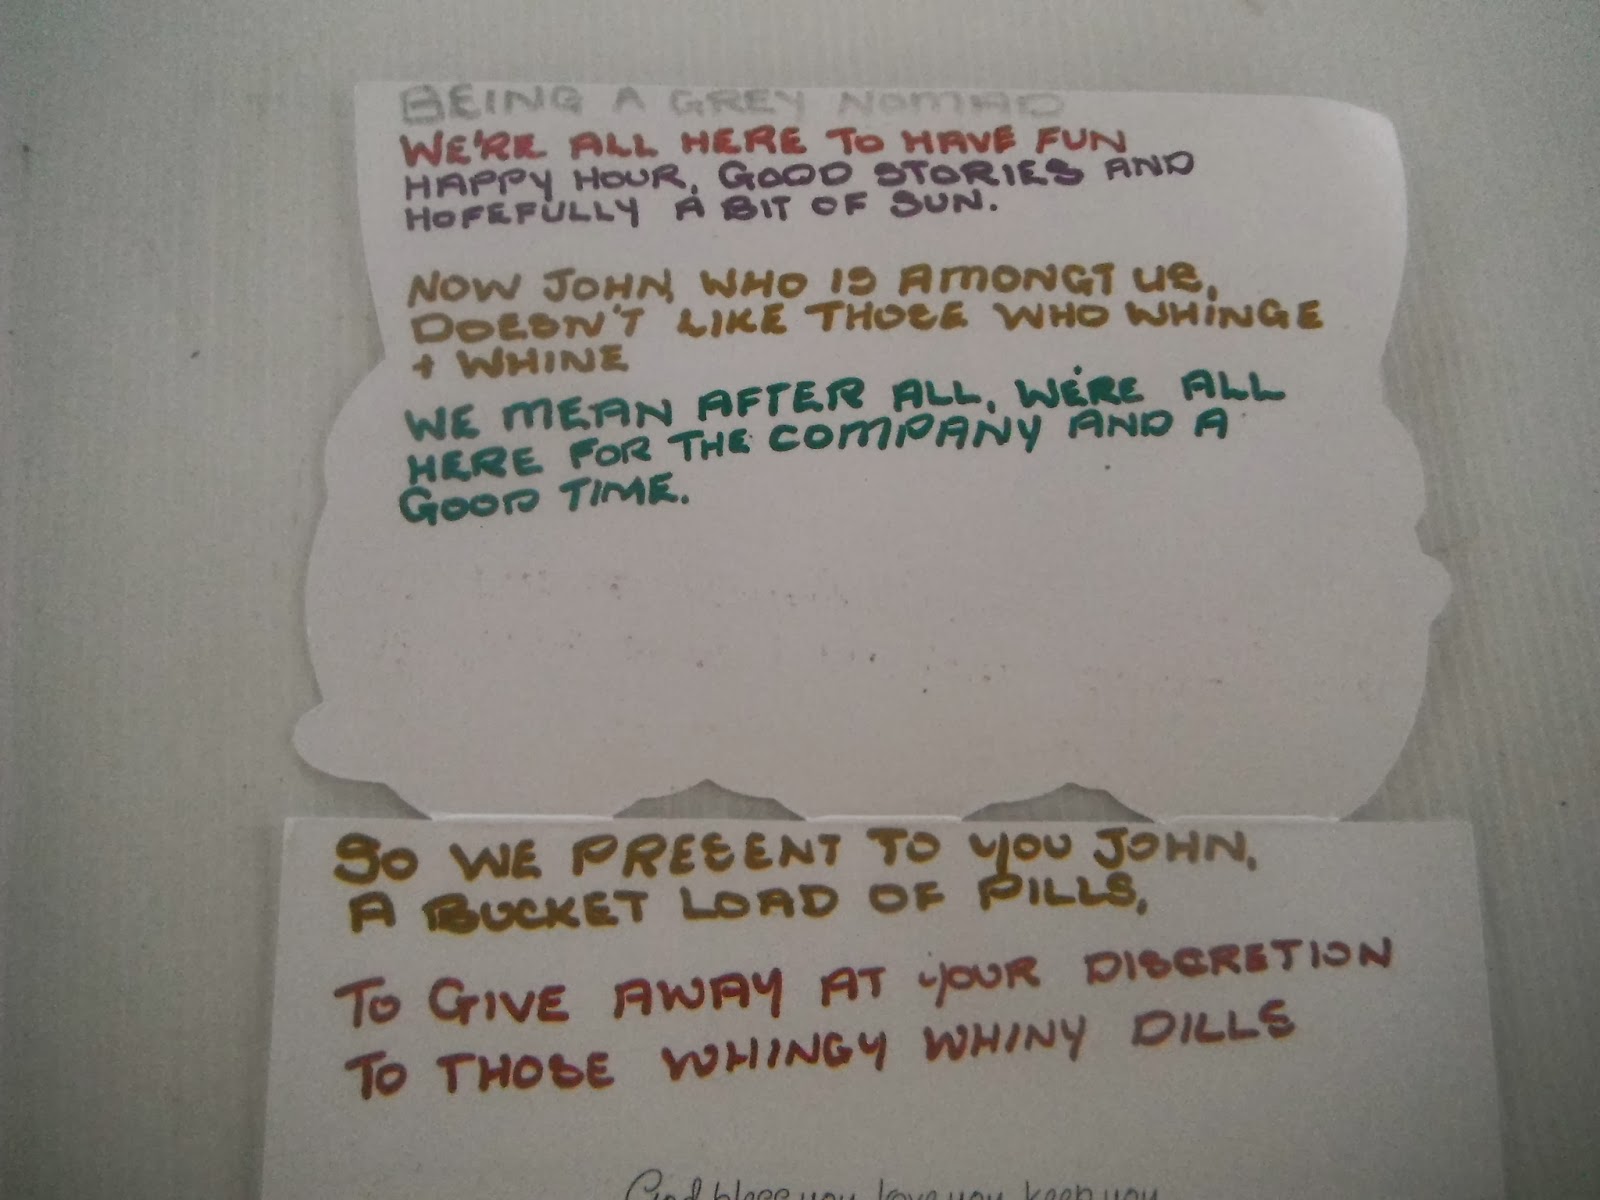 BEING A GREY NOMAD
WE'RE ALL HERE TO HAVE FUN
HAPPY HOUR, GOOD STORIES AND
HOFEFULLY A BIT OF SUN.
NOW JOHN, WHO IS AMONGT US,
DOESN'T LIKE THOSE WHO WHINGE
+ WHINE
WE MEAN AFTER ALL, WE'RE ALL
HERE FOR THE COMPANY AND A
GOOD TIME.
SO WE PRESENT TO YOU JOHN,
A BUCKET LOAD OF PILLS,
TO GIVE AWAY AT YOUR DISCRETION
TO THOSE WHINGY WHINY DILLS
God bless you love you keep you